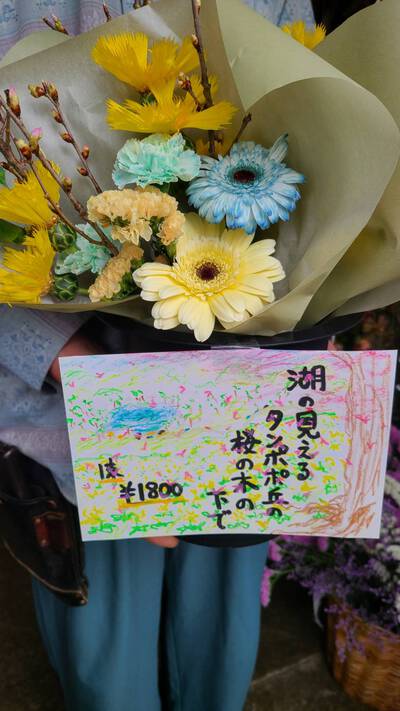 湖の見える
タンポポ丘の
桜の木の
下で
1束
¥1800